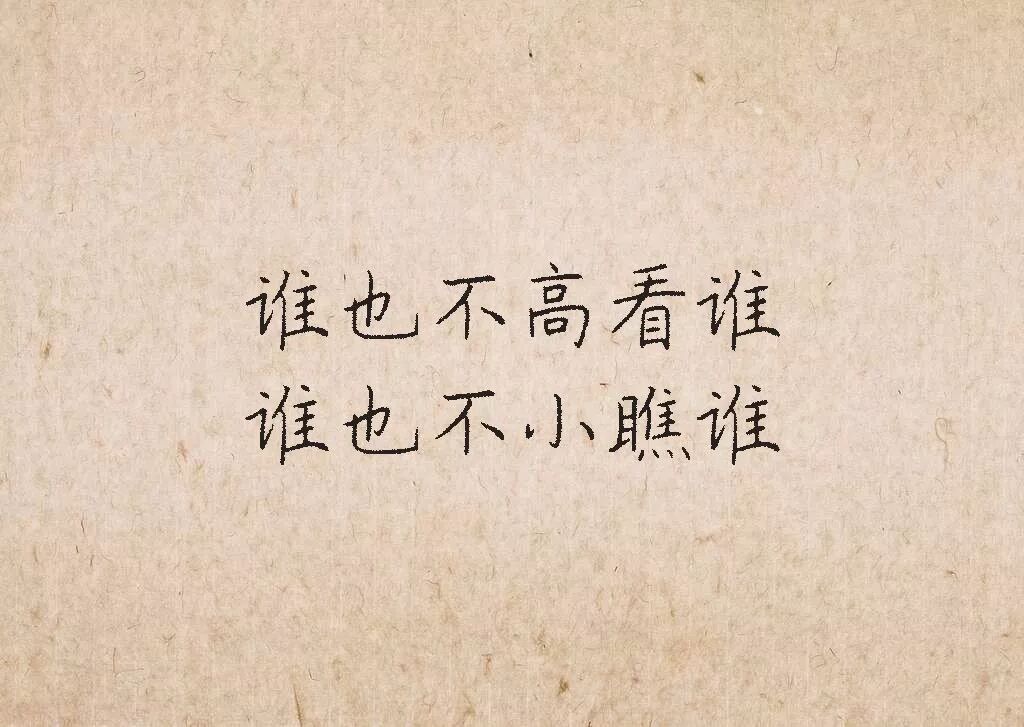 谁也不高看谁
谁也不小瞧谁